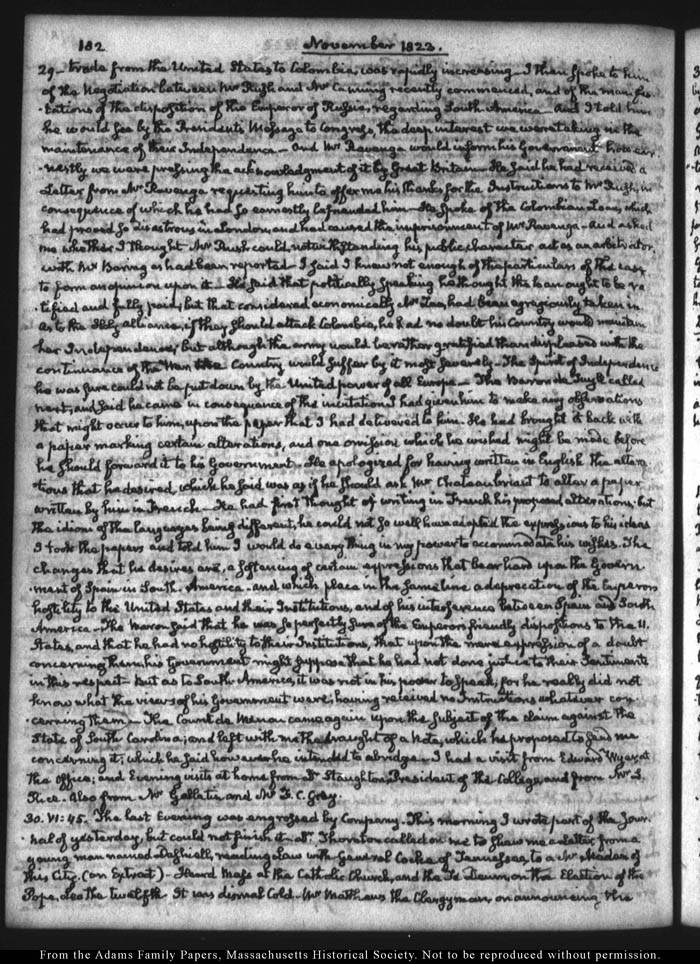 182 November 1823.
29 - trade from the United States to Colombia, was rapidly increasing - I then spoke to him
of the Negotiation between Mr Rush and Mr Canning recently commenced, and of the manifes-
-tations of the disposition of the Emperor of Russia, regarding South-America - And I told him
he would see by the President's Message to Congress, the deep interest we were taking in the
maintenance of their Independence - and Mr Ravenga would inform his Government how ear-
-nestly we were pressing the acknowledgment of it by Great Britain - He said he had received a
Letter from Mr Ravenga requesting him to offer me his thanks for the Instructions to Mr Rush, in
consequence of which he had so earnestly befriended him - He spoke of the Colombian Loan, which
had proved so disastrous in London, and had caused the imprisonment of Mr Ravenga - And asked
me whether I thought Mr Rush could, notwithstanding his public character act as an arbitrator,
with Mr Baring as had been reported - I said I knew not enough of the particulars of the case
to form an opinion upon it - He said that politically speaking he thought the Loan ought to be ra-
-tified and fully paid; but that considered economically Mr Zea, had been egregiously taken in.
As to the Holy alliance, if they should attack Colombia, he had no doubt his Country would maintain
her Independence; but although the army would be rather gratified than displeased with the
continuance of the War, the Country would suffer by it most severely - The Spirit of Independence
he was sure could not be put down by the United power of all Europe - The Baron de Tuyll called
next; and said he came in consequence of the invitation I had given him to make any observations
that might occur to him, upon the paper that I had delivered to him. He had brought it back with
a paper marking certain alterations, and one omission which he wished might be made before
he should forward it to his Government - He apologized for having written in English the altera-
-tions that he desired, which he said was as if he should ask Mr Chateaubriant to alter a paper
written by him in French - He had first thought of writing in French his proposed alterations; but
the idiom of the languages being different, he could not so well have adapted the expressions to his ideas
I took the papers and told him I would do every thing in my power to accommodate his wishes. The
changes that he desires are, a softening of certain expressions that bear hard upon the Govern-
-ment of Spain in South-America - and which place in the same line a deprecation of the Emperors
hostility to the United States and their Institutions, and of his interference between Spain and South
America - The Baron said that he was so perfectly sure of the Emperors friendly dispositions to the U.
States, and that he had no hostility to their Institutions, that upon the mere expression of a doubt
concerning them, his Government might suppose that he had not done justice to their Sentiments
in this respect. But as to South-America, it was not in his power to speak, for he really did not
know what the views of his Government were; having received no Instructions whatever con-
-cerning them - The Count de Menou came again upon the subject of the claim against the
State of South Carolina; and left with me the draught of a Note, which he proposed to send me
concerning it; which he said however he intended to abridge - I had a visit from Edward Wyer, at
the Office; and Evening visits at home from Dr Staughton, President of the College, and from Mr L.
Rice. Also from Mr Gallatin and Mr F. C. Gray.
30. VI: 45. The last Evening was engrossed by Company. This morning I wrote part of the Jour-
-nal of yesterday, but could not finish it - Dr Thornton called on me to shew me a letter from a
young man named reading Law with General Cocke of Tennessee, to a Mr of
this City. (an Extract) - Heard Mass at the Catholic Church, and the Te Deum, on the Election of the
Pope, Leo the twelfth. It was dismal Cold - Mr Matthews the Clergyman, on announcing the
From the Adams Family Papers, Massachusetts Historical Society. Not to be reproduced without permission.